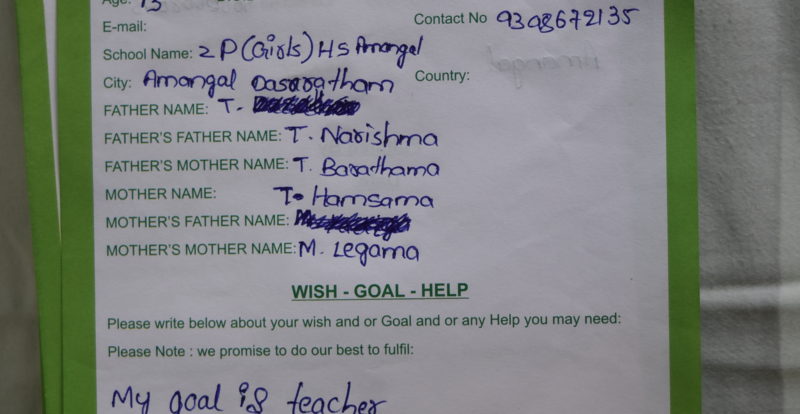 Age: 13
E-mail:
Contact No 9398672135
School Name: ZP(Girls) HS Amangal
City: Amangal Dasaratham Country:
FATHER NAME: T.
FATHER'S FATHER NAME: T. Narishma
FATHER'S MOTHER NAME: T. Barathama
MOTHER NAME: T. Hamsama
MOTHER'S FATHER NAME:
MOTHER'S MOTHER NAME: M. Legama
WISH - GOAL - HELP
Please write below about your wish and or Goal and or any Help you may need:
Please Note : we promise to do our best to fulfil:
My goal is teacher